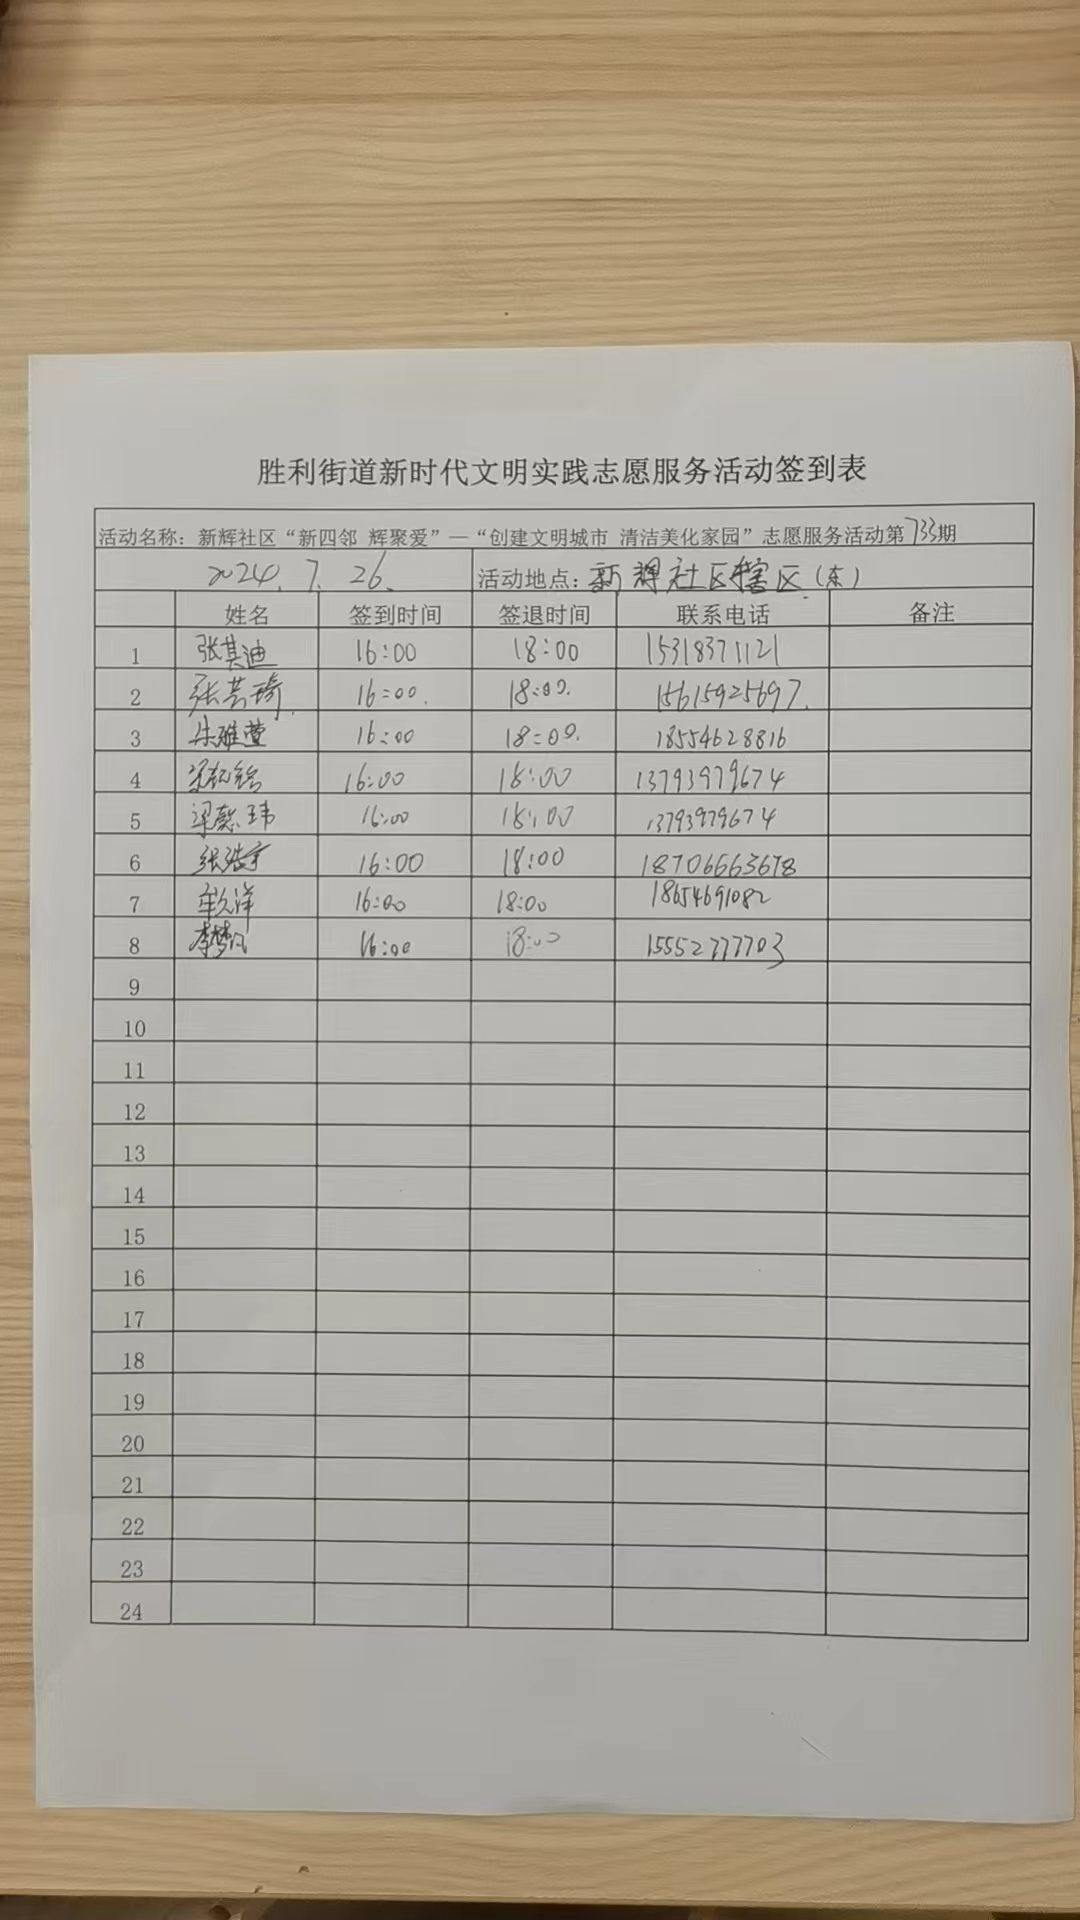 胜利街道新时代文明实践志愿服务活动签到表
活动名称：新辉社区“新四邻 辉聚爱”—“创建文明城市 清洁美化家园”志愿服务活动第733期
2024.7.26. 活动地点：新辉社区辖区（东）
姓名 签到时间 签退时间 联系电话 备注
1 张其迪 16:00 18:00 15318371121
2 张芸琦 16:00. 18:00. 15615925697.
3 朱雅萱 16:00 18:00. 18554628816
4 16:00 18:00 13793979674
5 梁懿玮 16:00 18:00 13793979674
6 张浩宇 16:00 18:00 18706663678
7 牟洋 16:00 18:00 18654691082
8 李梦凡 16:00 18:00 15552777703
9
10
11
12
13
14
15
16
17
18
19
20
21
22
23
24